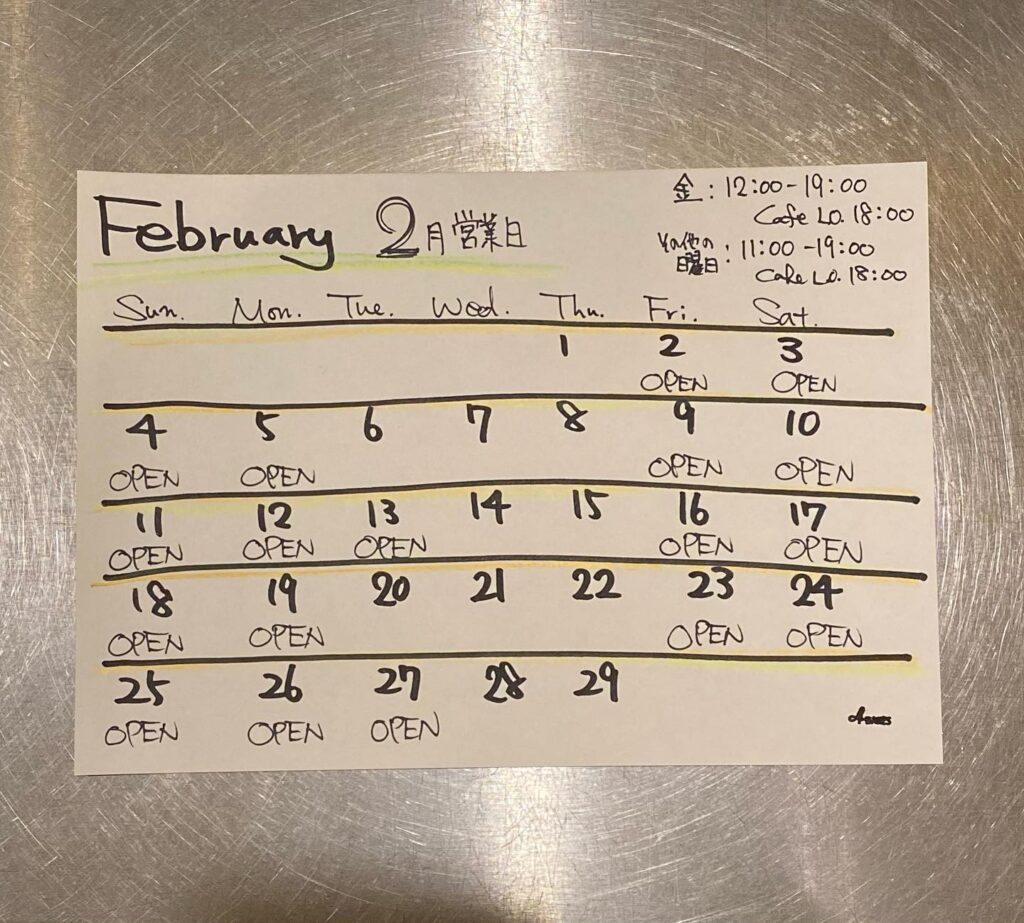 February 2月営業日
金:12:00-19:00
Cafe L.O. 18:00
その他の曜日:11:00-19:00
Cafe L.O. 18:00
Sun. Mon. Tue. Wed. Thu. Fri. Sat.
1 2 3
OPEN OPEN
4 5 6 7 8 9 10
OPEN OPEN OPEN OPEN
11 12 13 14 15 16 17
OPEN OPEN OPEN OPEN OPEN
18 19 20 21 22 23 24
OPEN OPEN OPEN OPEN
25 26 27 28 29
OPEN OPEN OPEN